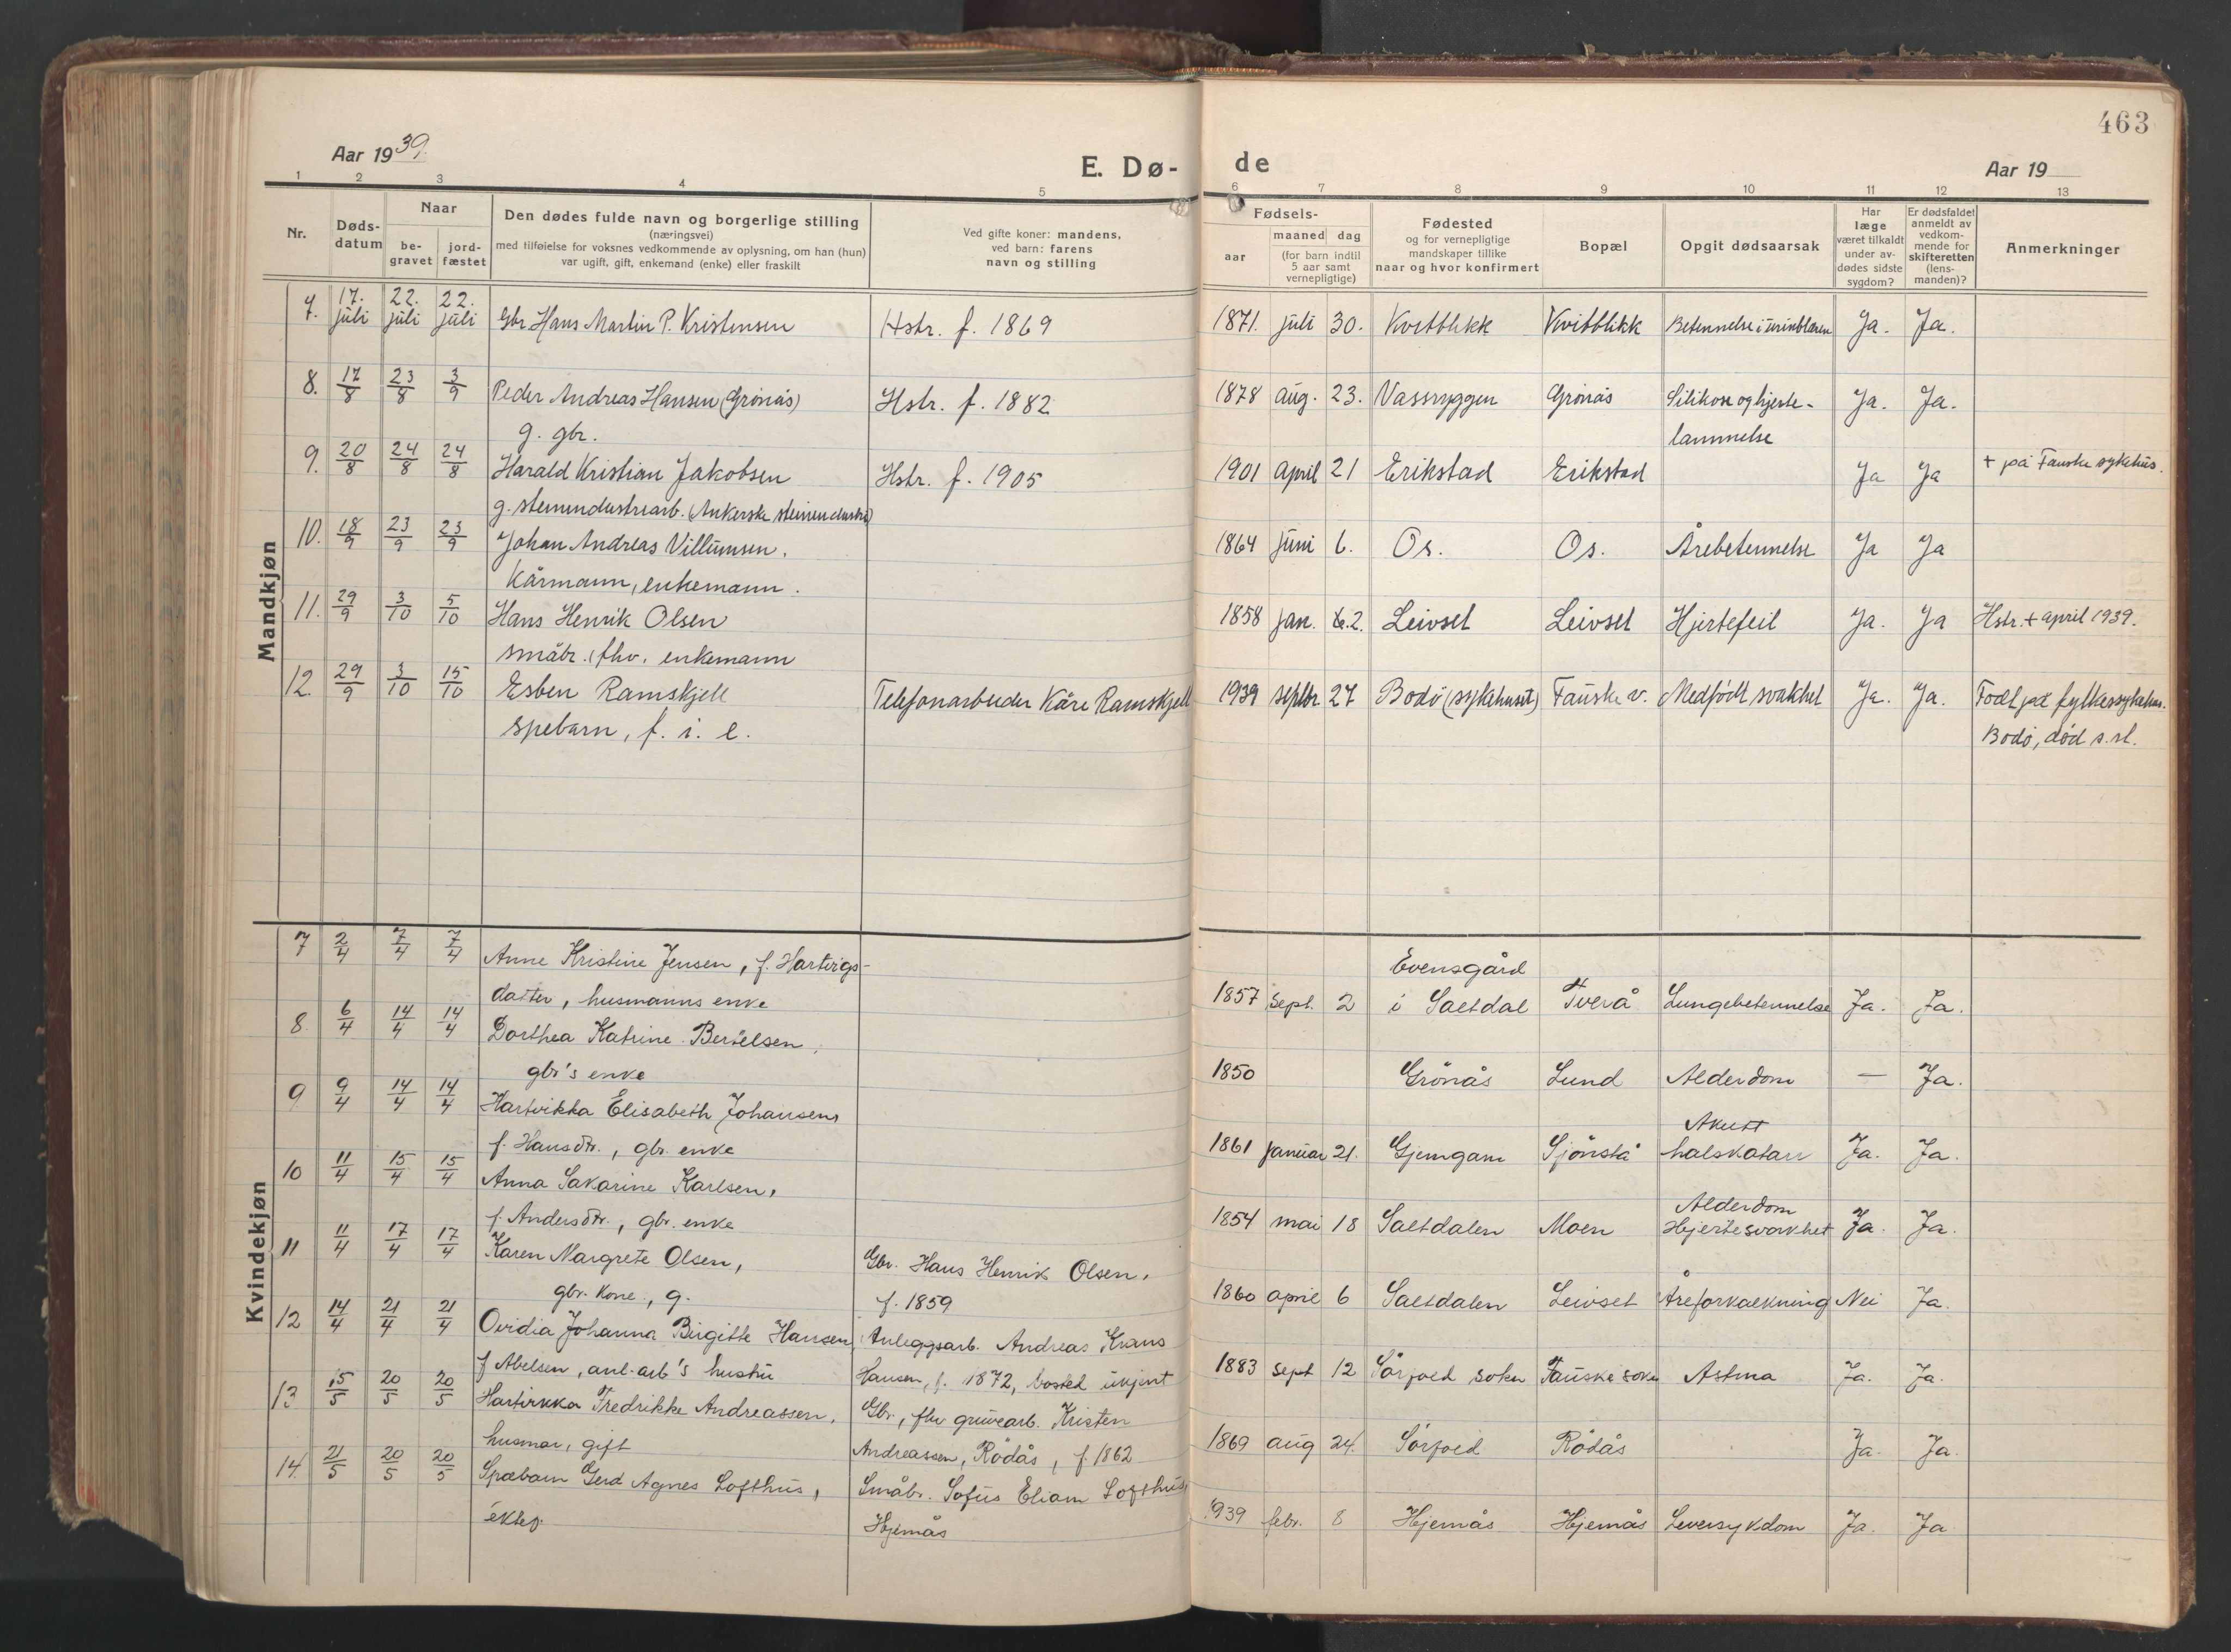 463
Aar 1939.
E. Dø-
de
Aar 19
1 2 3 4 5 6 7 8 9 10 11 12 13
Nr.
Døds-
datum
Naar
be-
gravet
jord-
fæstet
Den dødes fulde navn og borgerlige stilling
(næringsvei)
med tilføielse for voksnes vedkommende av oplysning, om han (hun)
var ugift, gift, enkemand (enke) eller fraskilt
Ved gifte koner: mandens,
ved barn: farens
navn og stilling
Fødsels-
aar
maaned dag
(for barn indtil
5 aar samt
vernepligtige)
Fødested
og for vernepligtige
mandskaper tillike
naar og hvor konfirmert
Bopæl
Opgit dødsaarsak
Har
læge
været tilkaldt
under av-
dødes sidste
sygdom?
Er dødsfaldet
anmeldt av
vedkom-
mende for
skifteretten
(lens-
manden)?
Anmerkninger
Mandkjøn
7. 17. juli 22. juli 22. juli Gbr Hans Martin P. Kristensen Hstr. f. 1869 1871. juli 30. Kvitblikk Kvitblikk Betennelse i urinblæren Ja. Ja.
8. 17/8 23/8 3/9 Peder Andreas Hansen (Grönås) Hstr. f. 1882 1878 aug. 23. Vassryggen Grönås Silikose og hjerte- Ja. Ja.
g. gbr. lammelse
9. 20/8 24/8 24/8 Harald Kristian Jakobsen Hstr. f. 1905 1901 april 21 Erikstad Erikstad Ja Ja + på Fauske sykehus.
g. steinindustriarb. (Ankerske steinindustri)
10. 18/9 23/9 23/9 Johan Andreas Villumsen. 1864 juni 6. Os. Os. Årebetennelse Ja Ja
Kårmann, enkemann.
11. 29/9 3/10 5/10 Hans Henrik Olsen 1858 jan. 2. Leivset Leivset Hjertefeil Ja. Ja Hstr. + april 1939.
småbr. fhv. enkemann
12. 29/9 3/10 15/10 Esben Ramskjell Telefonarbeider Kåre Ramskjell 1939 septbr. 27 Bodö (sykehuset) Fauske v. Medfödt svakhet Ja. Ja. Födt på fylkessykehus.
spebarn, f. i. e. Bodö, död s. st.
Kvindekjøn
7 2/4 7/4 7/4 Anne Kristine Jensen, f. Hartvigs-
datter, husmanns enke 1857 sept. 2 Evensgård i Saltdal Tverå Lungebetennelse Ja. Ja.
8 6/4 14/4 14/4 Dorthea Katrine Bertelsen,
gbr's enke 1850 Grönås Lund Alderdom — Ja.
9 9/4 14/4 14/4 Hartvikka Elisabeth Johansen
f. Hansdtr., gbr. enke 1861 januar 21. Gjemgam Sjönstå Akutt halskatarr Ja. Ja.
10 11/4 15/4 15/4 Anna Sakarine Karlsen,
f. Andersdtr., gbr. enke 1854 mai 18 Saltdalen Moen Alderdom Hjertesvakhet Ja. Ja.
11 11/4 17/4 17/4 Karen Margrete Olsen, Gbr. Hans Henrik Olsen,
gbr. kone, g. f. 1859 1860 april 6 Saltdalen Leivset Åreforkalkning Nei Ja.
12 14/4 21/4 21/4 Ovidia Johanna Birgitte Hansen Anleggsarb. Andreas Kraus
f Abelsen, anl.arb's hustru Hansen, f. 1872, bosted ukjent 1883 sept 12 Sörfold sokn Fauske sokn Astma Ja. Ja.
13 15/5 20/5 20/5 Hartvikka Fredrikke Andreassen, Gbr., fhv gruvearb. Kristen
husmor, gift Andreassen, Rödås, f. 1862 1869 aug 24. Sörfold Rödås Ja. Ja.
14 21/5 20/5 20/5 Spebarn Gerd Agnes Lofthus, Småbr. Sofus Eliam Lofthus,
ektef. Hjemås 1939 febr. 8 Hjemås Hjemås Leversykdom Ja. Ja